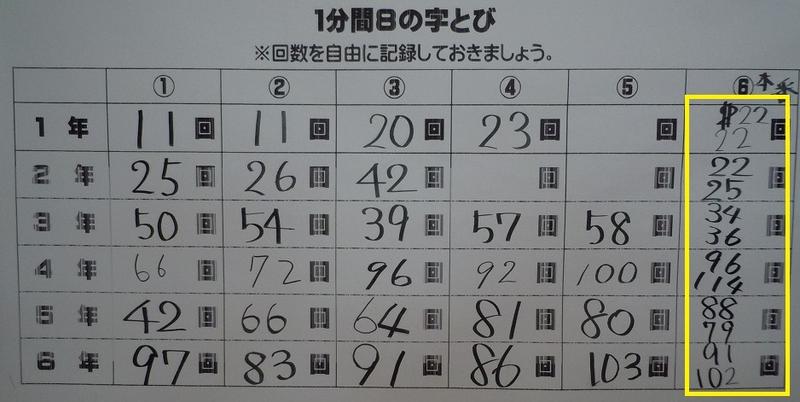 1分間8の字とび
※回数を自由に記録しておきましょう。
① ② ③ ④ ⑤ ⑥本番
1年 11回 11回 20回 23回 回 22 22回
2年 25回 26回 42回 回 回 22 25回
3年 50回 54回 39回 57回 58回 34 36回
4年 66回 72回 96回 92回 100回 96 114回
5年 42回 66回 64回 81回 80回 88 79回
6年 97回 83回 91回 86回 103回 91 102回